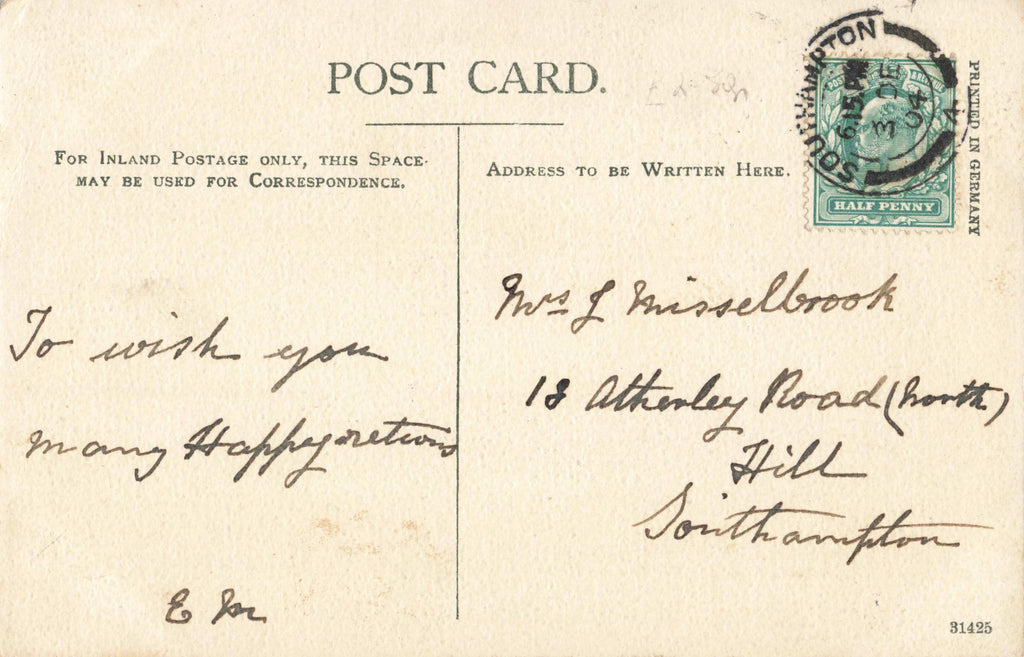 POST CARD.
FOR INLAND POSTAGE ONLY, THIS SPACE
MAY BE USED FOR CORRESPONDENCE.
ADDRESS TO BE WRITTEN HERE.
PRINTED IN GERMANY
SOUTHAMPTON
6.15 PM
3 DE
04
4
HALF PENNY
To wish you
many Happy returns
E M
Mrs J Misselbrook
18 Atherley Road (North)
Hill
Southampton
31425